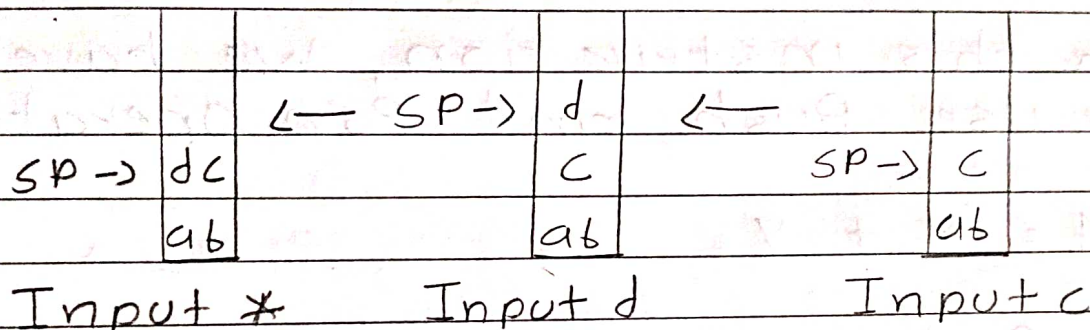 <— SP-> d <—
SP -> dc c SP-> c
ab ab ab
Input * Input d Input c